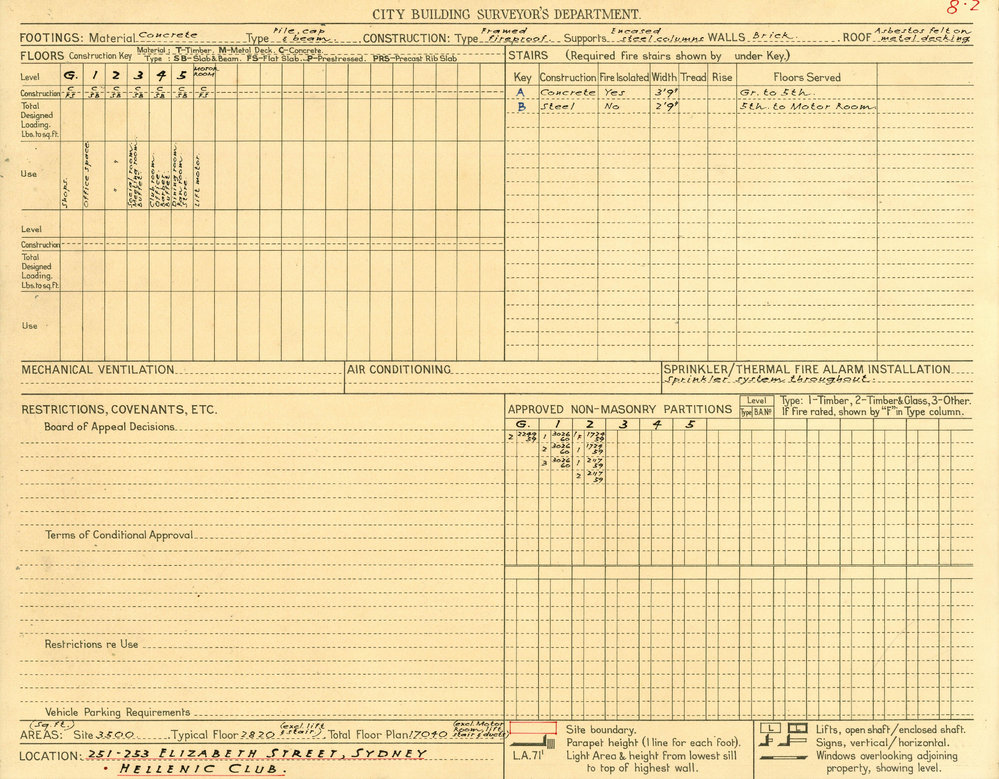 8·2
CITY BUILDING SURVEYOR'S DEPARTMENT.
FOOTINGS: Material Concrete Type Pile, cap & beam. CONSTRUCTION: Type Framed fireproof. Supports Encased steel columns WALLS Brick ROOF Asbestos felt on metal decking
FLOORS Construction Key Material; T-Timber, M-Metal Deck, C-Concrete.
Type; SB-Slab & Beam, FS-Flat Slab, P-Prestressed. PRS-Precast Rib Slab
Level G. 1 2 3 4 5 MOTOR ROOM
Construction C FS C SB C SB C SB C SB C SB C FS
Total Designed Loading. Lbs. to sq.ft.
Use Shops. Office space. " Social room. Meeting room. Buffet. Club room. Office. Buffet. Dining room. Store Lift motor.
Level
Construction
Total Designed Loading. Lbs. to sq.ft.
Use
STAIRS (Required fire stairs shown by under Key.)
Key Construction Fire Isolated Width Tread Rise Floors Served
A Concrete Yes 3'9" Gr. to 5th.
B Steel No 2'9" 5th. to Motor Room
MECHANICAL VENTILATION
AIR CONDITIONING
SPRINKLER/THERMAL FIRE ALARM INSTALLATION
Sprinkler system throughout.
RESTRICTIONS, COVENANTS, ETC.
Board of Appeal Decisions.
Terms of Conditional Approval
Restrictions re Use
Vehicle Parking Requirements
APPROVED NON-MASONRY PARTITIONS
Level
Type B.A.No
Type: 1-Timber, 2-Timber & Glass, 3-Other.
If fire rated, shown by "F" in Type column.
G. 1 2 3 4 5
2 2299/59 1 3026/60 1F 1724/59
2 3026/60 1 1724/59
3 3026/60 1 2117/59
2 2117/59
AREAS: (Sq.ft.) Site 3500 Typical Floor 2820 (excl lift & stair) Total Floor Plan 17040 (excl. Motor room, lift, stair & ducts)
LOCATION: 251-253 ELIZABETH STREET, SYDNEY
• HELLENIC CLUB.
Site boundary.
Parapet height (1 line for each foot).
L.A. 71' Light Area & height from lowest sill to top of highest wall.
L L Lifts, open shaft/enclosed shaft.
Signs, vertical/horizontal.
Windows overlooking adjoining property, showing level.